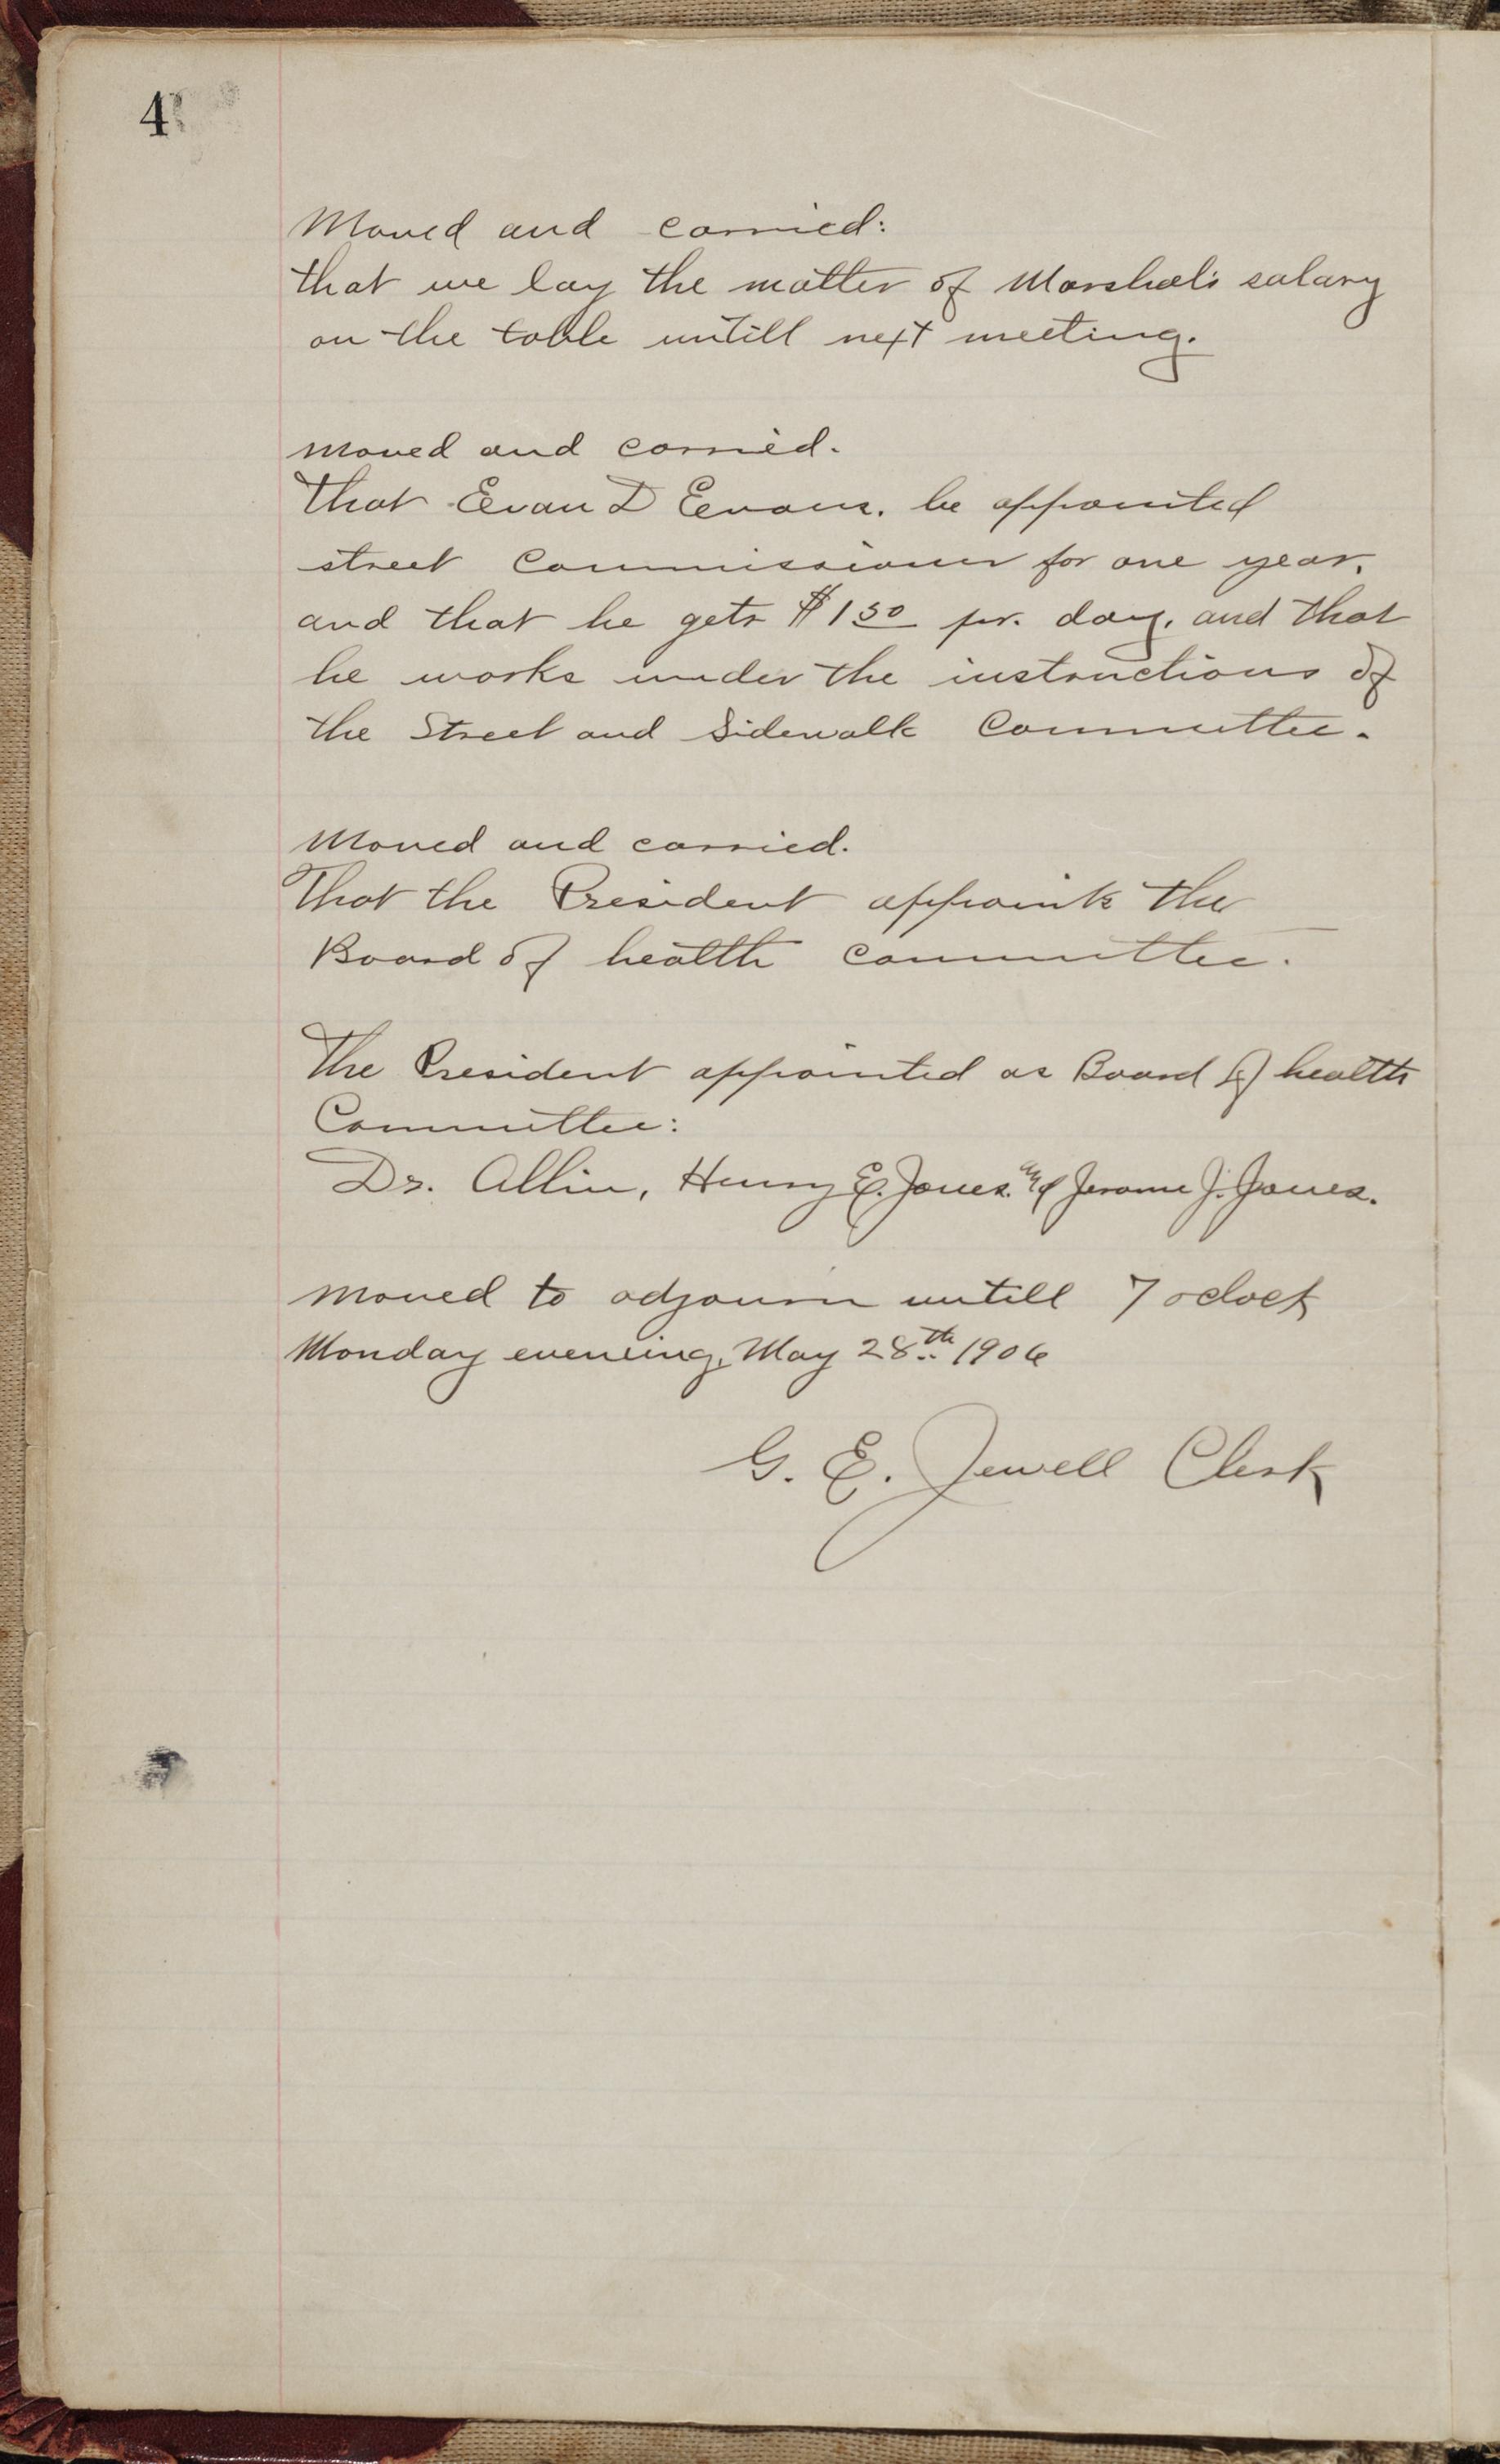 4
Moved and carried:
that we lay the matter of Marshal's salary
on the table untill next meeting.
Moved and carried.
That Evan D Evans. be appointed
street Commissioner for one year.
and that he gets $1 50 pr. day. and that
he works under the instructions of
the Street and Sidewalk Committee.
Moved and carried.
That the President appoints the
Board of health committee.
The President appointed as Board of health
Committee:
Dr. Allin, Henry E. Jones. and Jerome J. Jones.
Moved to adjourn untill 7 oclock
Monday evening, May 28th 1906
G. E. Jewell Clerk